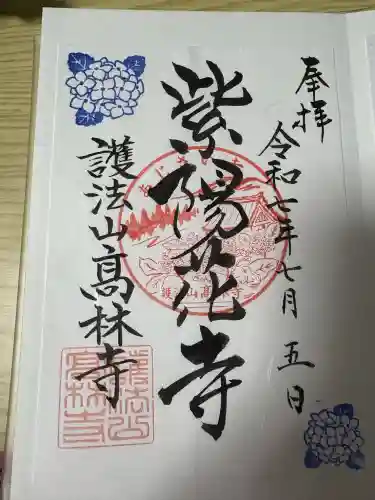 奉拝
令和七年七月五日
紫陽花寺
護法山高林寺